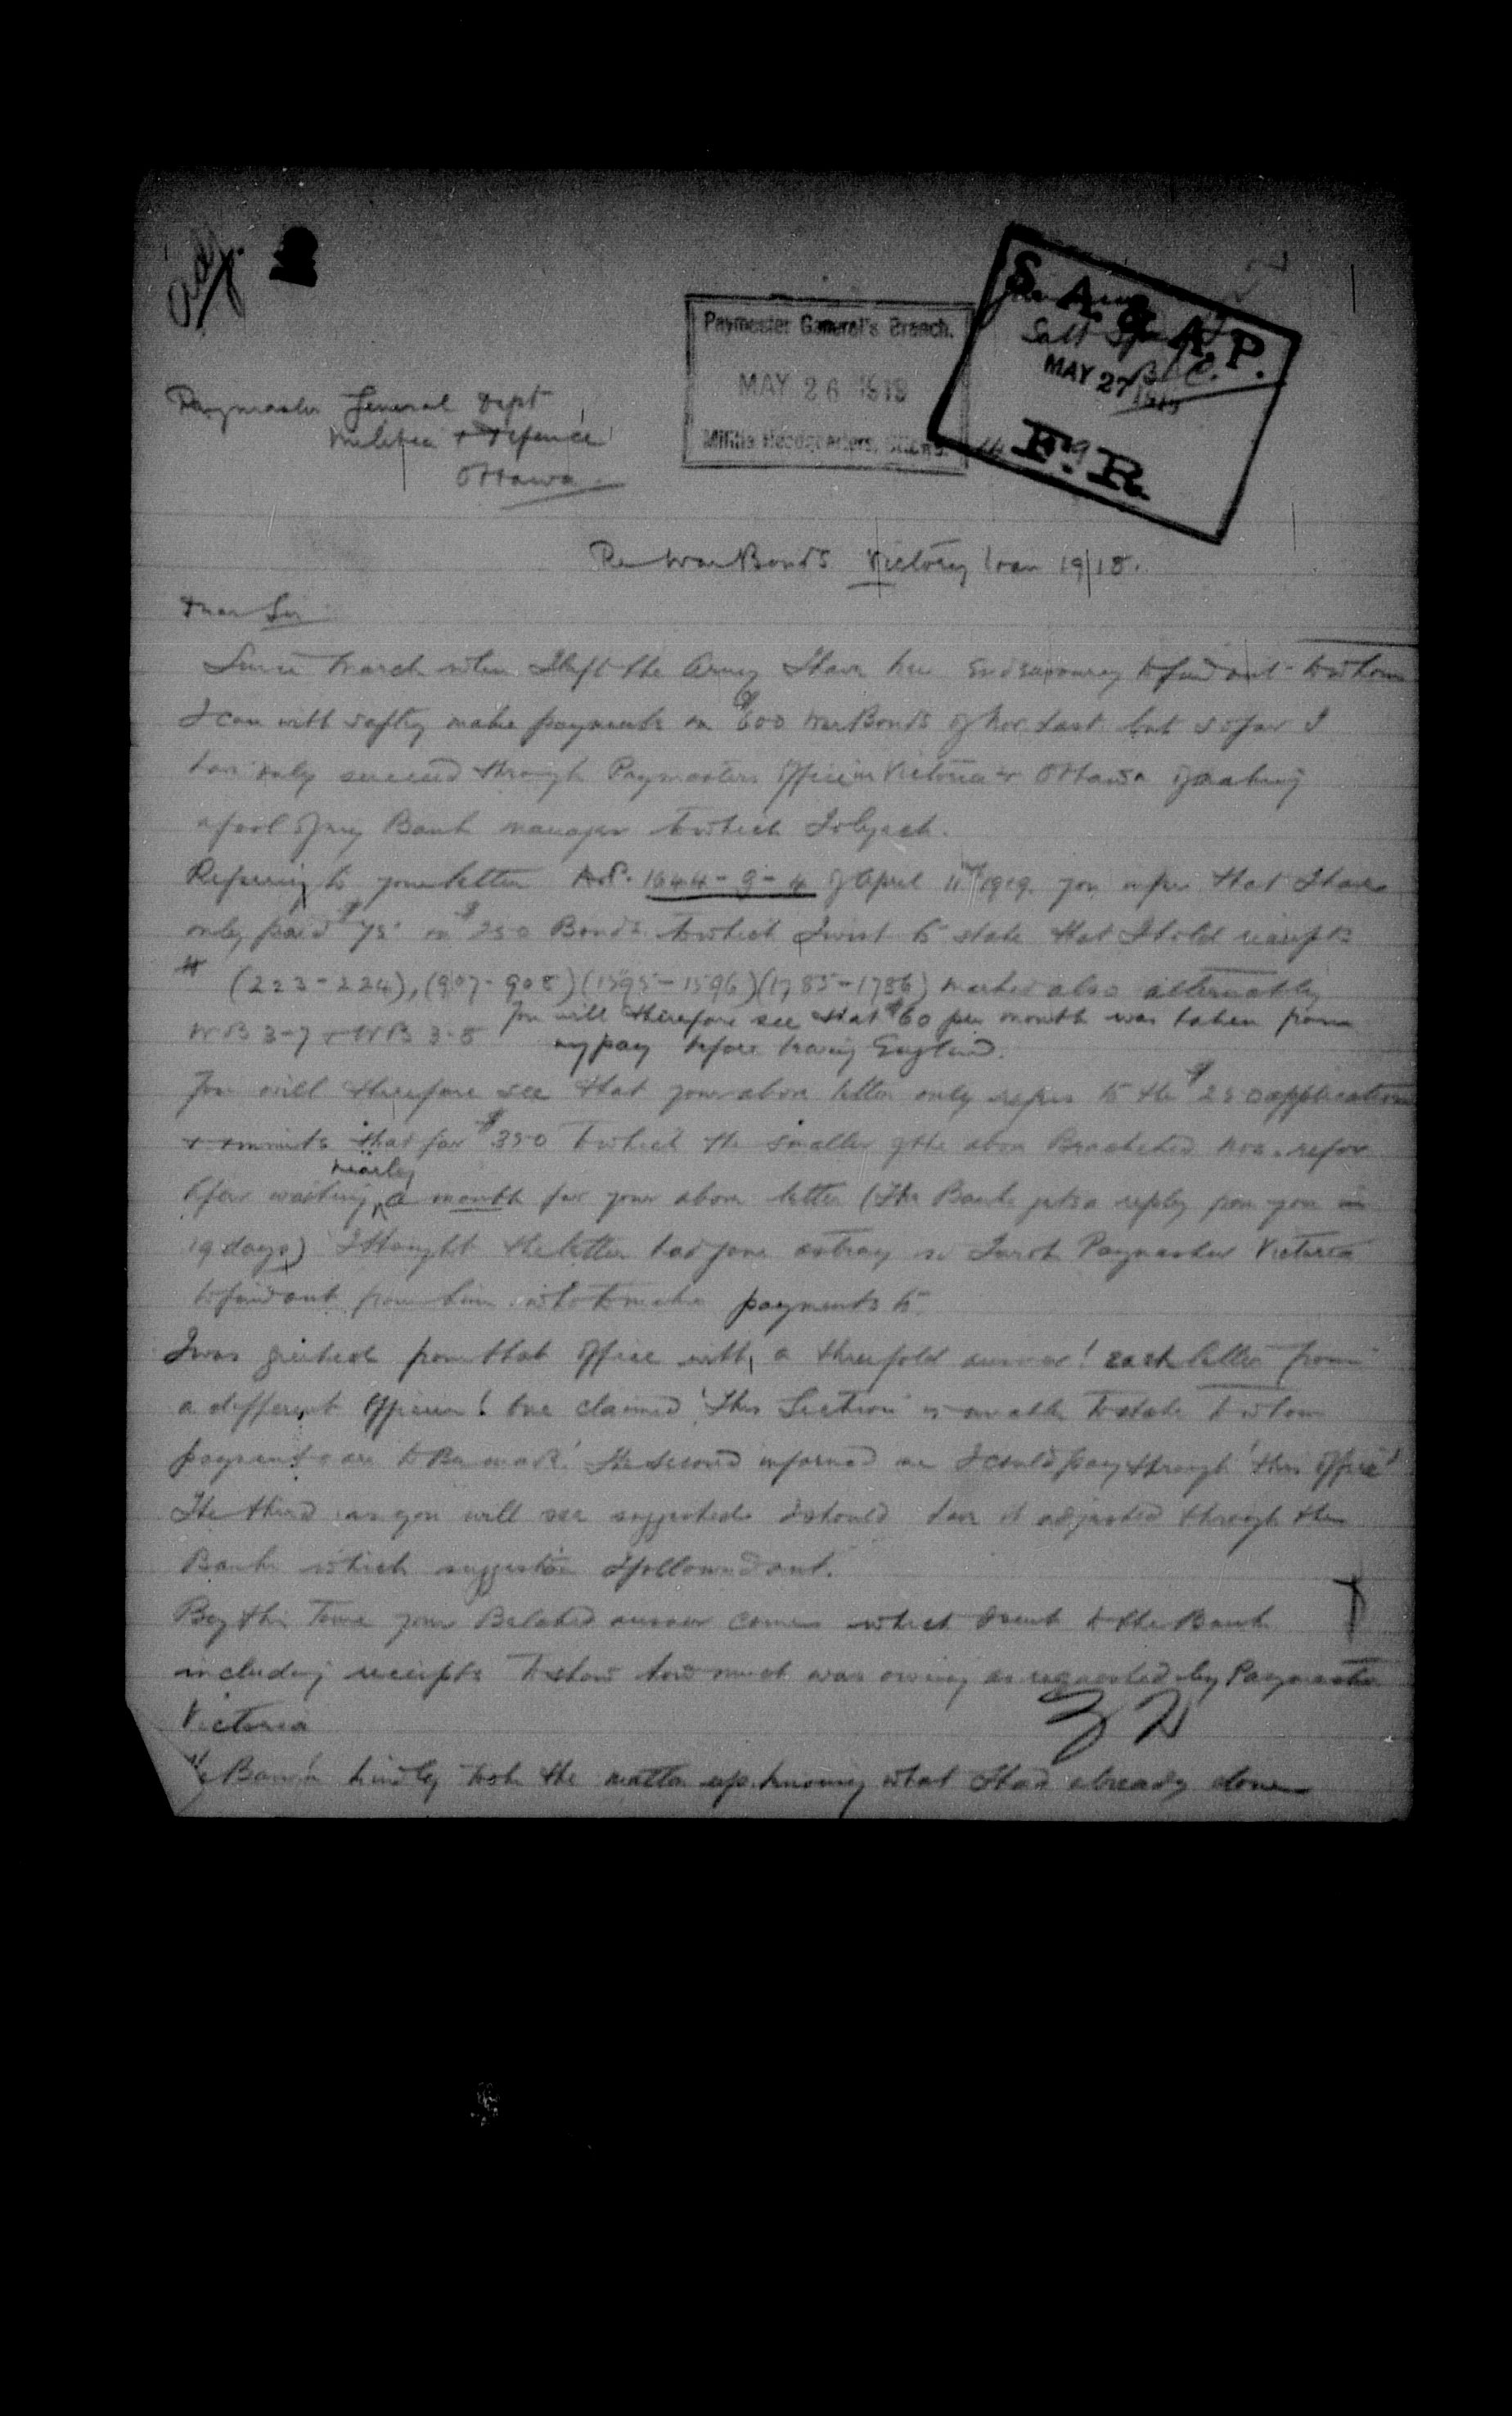 Adj.
S. A. & A. P.
MAY 27 1919
F. R.
Salt Spring
B.C.
Paymaster General's Branch.
MAY 26 1919
Militia Headquarters, Ottawa.
Paymaster General Dept
Militia + Defence
Ottawa.
Re War Bonds Victory loan 1918.
Dear Sir
Since March when I left the Army I have been endeavouring to find out to whom
I can with safty make payments on $600 War Bonds of Nov. last but so far I
have only succeeed through Paymasters Office in Victoria & Ottawa of making
a fool of my Bank manager to which I object.
Refering to your letter 1644-9-4 of April 11th 1919. you infer that I have
only paid $75 on $250 Bonds to which I wish to state that I hold receipts
# (223-224), (907-908) (1595-1596) (1785-1786) marked also alternatly
WB 3-7 & WB 3-8 You will therefore see that $60 per month was taken from
my pay before leaving England.
You will therefore see that your above letter only refers to the $250 application
& ommits that for $350 to which the smaller of the above Bracketed nos. refer
After waiting nearly a month for your above letter (The Bank gets a reply from you in
19 days) I thought the letter had gone astray so I wrote Paymaster Victoria
to find out from him who to make payments to.
I was greeted from that Office with a threefold answer! each letter from
a different Officer! One claimed 'This Section is unable to state to whom
payments are to Be made.' The second informed me I could pay through 'this Office'
The third as you will see suggested I should have it adjusted through the
Bank which suggestion I followed out.
By this time your Belated answer comes which I sent to the Bank
including receipts to show how much was owing as requested by Paymaster
Victoria
The Bank kindly took the matter up knowing what I had already done